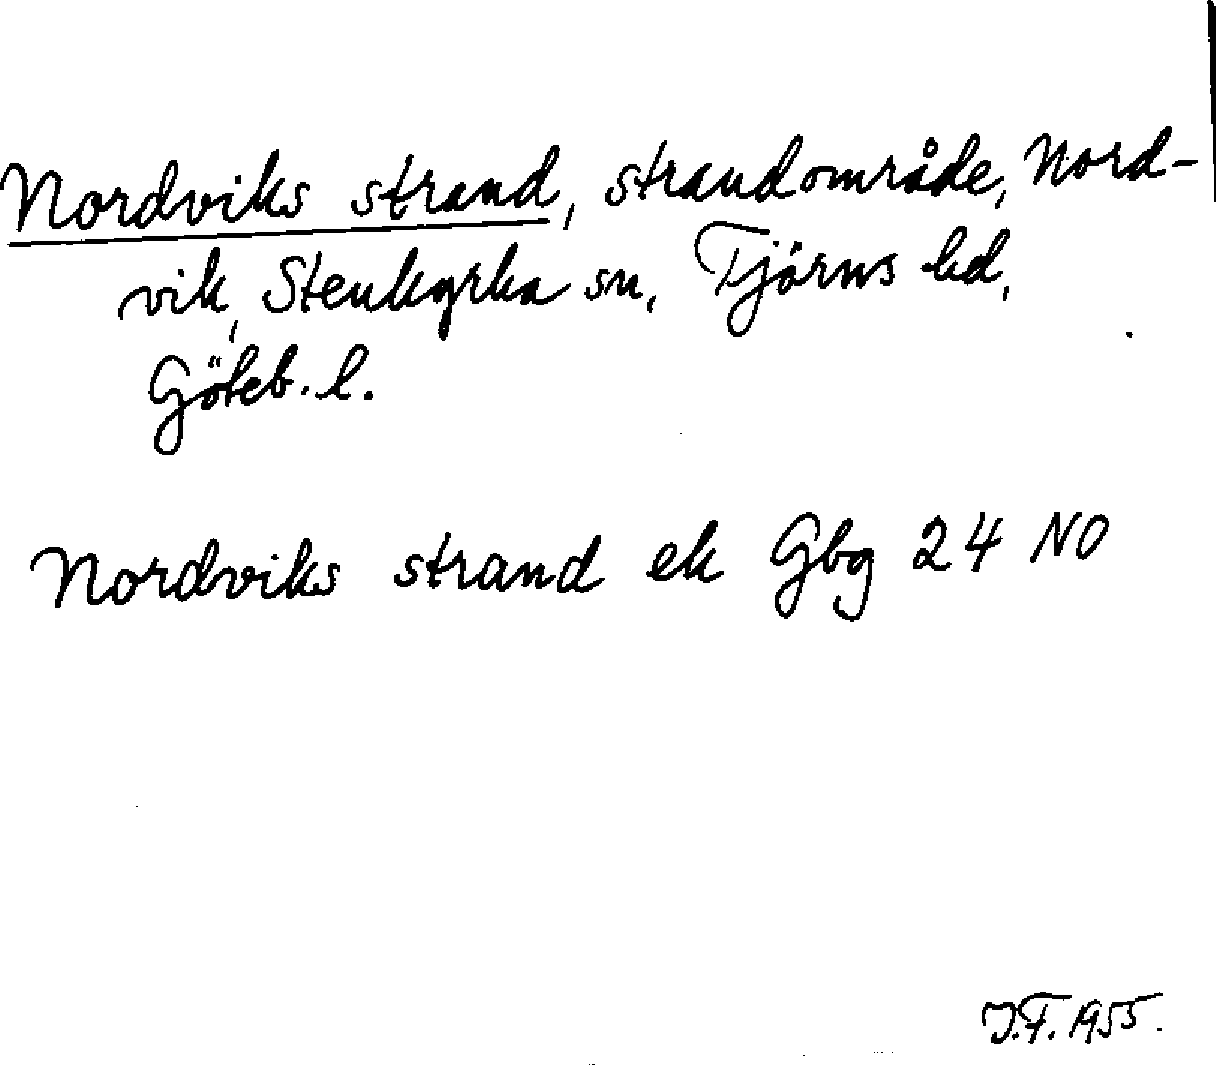 Nordviks strand, strandområde, Nord-
vik, Stenkyrka sn, Tjörns hd,
Göteb. l.
Nordviks strand ek Gbg 24 NO
J.F. 1955.